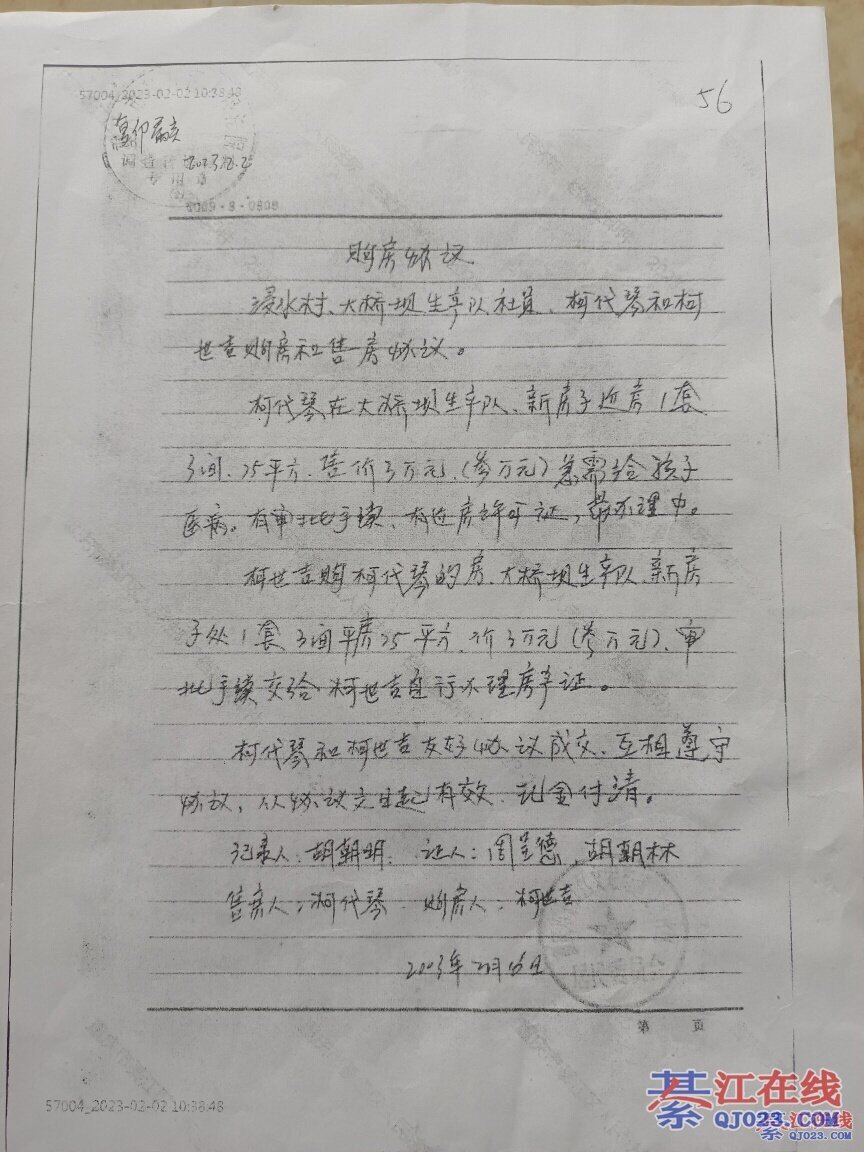 57004_2023-02-02 10:38:48
56
复印属实
2023.2.2
专用章
购房协议
浸水村、大桥坝生产队社员、柯代琴和柯
世吉购房和售房协议。
柯代琴在大桥坝生产队、新房子处房1套
3间、75平方、售价3万元、(叁万元)急需给孩子
医病。有审批手续、有 房许可证,带办理中。
柯世吉购柯代琴的房、大桥坝生产队、新房
子处1套3间平房75平方、价3万元(叁万元)、审
批手续交给柯世吉自行办理房产证。
柯代琴和柯世吉友好协议成交、互相遵守
协议,从协议之日起有效、现金付清。
记录人:胡朝明、证人:周 德,胡朝林
售房人:柯代琴、购房人:柯世吉
2003年 月16日
第 页
57004_2023-02-02 10:38:48
綦江在线
QJ023.COM
綦江在线
QJ023.COM